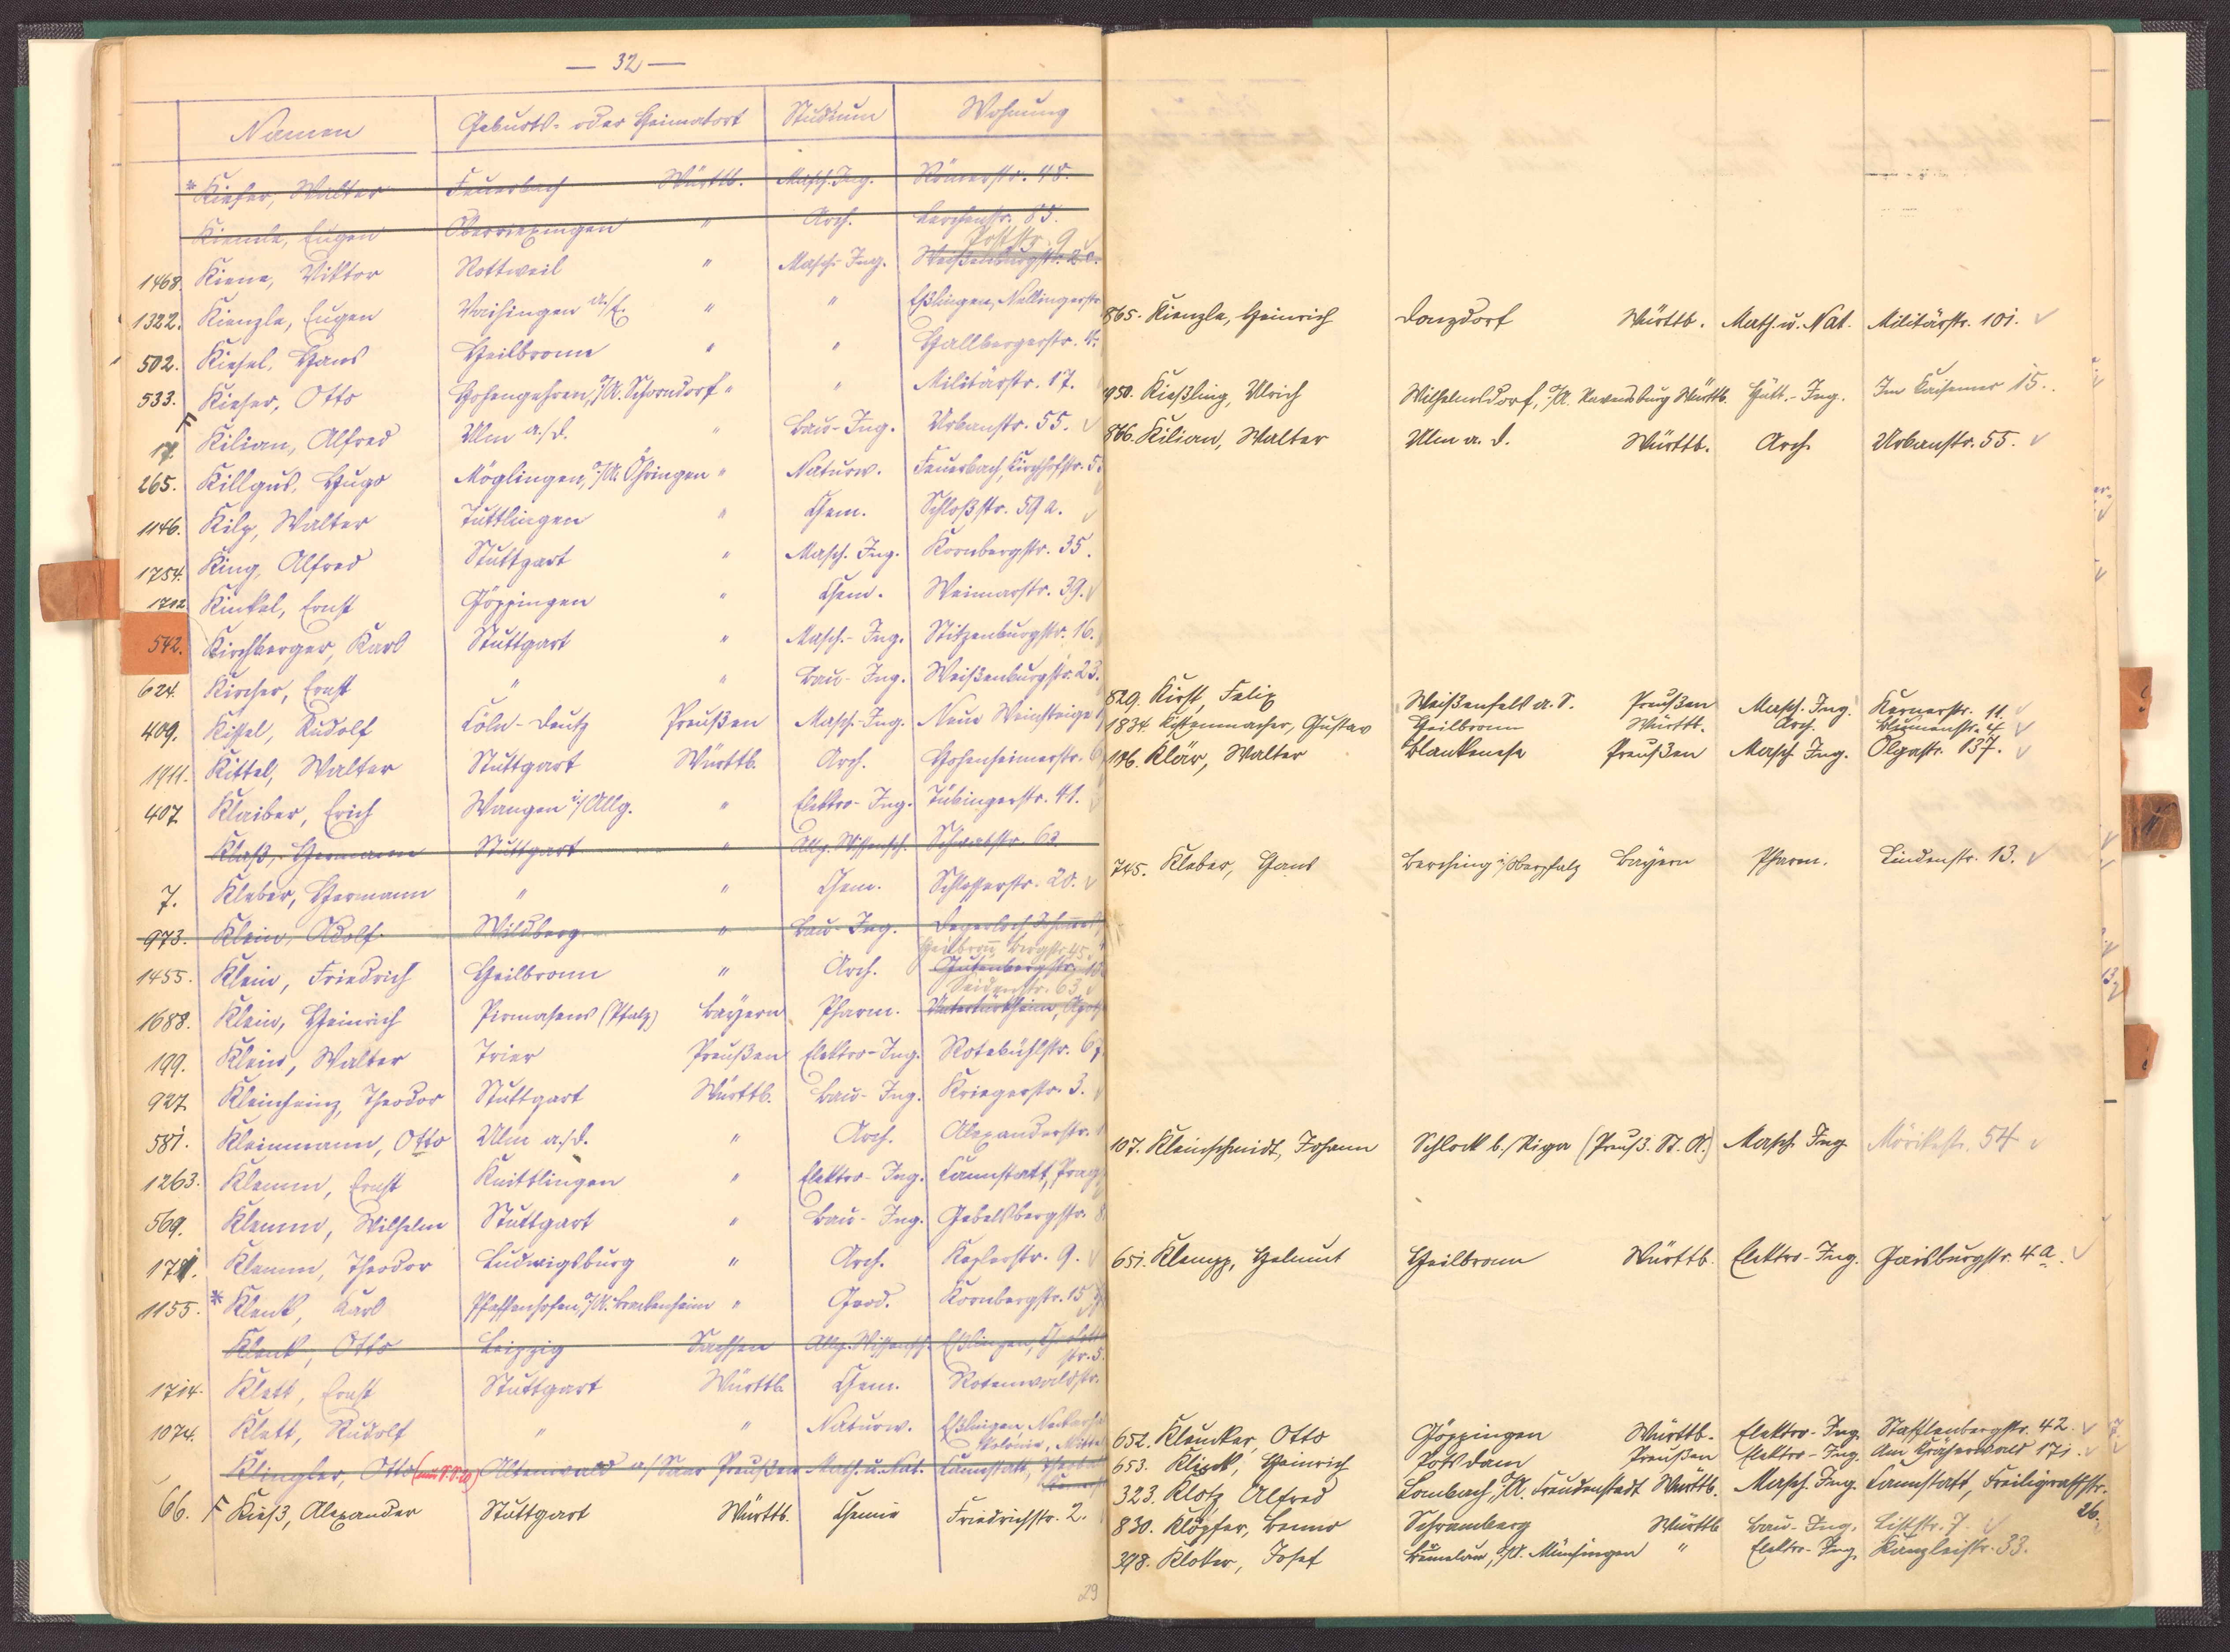 — 32 —
Namen Geburts- oder Heimatort Studium Wohnung
* Kiefer, Walter Feuerbach Württb. Masch. Ing. Römerstr. 48.
Kiemle, Eugen Oberriexingen " Arch. Lerchenstr. 85.
Poststr. 9
1468. Kiene, Viktor Rottweil " Masch.-Ing. Weißenburgstr. 2
1322. Kienzle, Eugen Vaihingen a/E. " " Eßlingen, Nellingerstr
502. Kiesel, Hans Heilbronn " " Hallbergerstr.
533. Kieser, Otto Hohengehren, O/A. Schorndorf " " Militärstr. 17.
F
17. Kilian, Alfred Ulm a./D. " Bau-Ing. Urbanstr. 55.
265. Killgus, Hugo Möglingen, O/A. Öhringen " Naturw. Feuerbach, Kirchhofstr. 5
1146. Kilp, Walter Tuttlingen " Chem. Schloßstr. 59 a.
1754. King, Alfred Stuttgart " Masch. Ing. Kornbergstr. 35.
1702 Kinkel, Ernst Göppingen " Chem. Weimarstr. 39.
542. Kirchberger, Karl Stuttgart " Masch.-Ing. Stitzenburgstr. 16.
624. Kircher, Ernst " " Bau-Ing. Weißenburgstr. 23.
409. Kissel, Rudolf Cöln-Deutz Preußen Masch.-Ing. Neue Weinsteige
1911. Kittel, Walter Stuttgart Württb. Arch. Hohenheimerstr. 6
407 Klaiber, Erich Wangen i/Allg. " Elektro-Ing. Tübingerstr. 41.
Klaß, Hermann Stuttgart " Allg. Wissensch. Schwabstr. 63
7. Kleber, Hermann " " Chem. Schlosserstr. 20.
973. Klein, Adolf Wildberg " Bau-Ing. Degerloch
Heilbronn Bergstr. 45.
1455. Klein, Friedrich Heilbronn " Arch. Gutenbergstr. 10
Seidenstr. 63
1688. Klein, Heinrich Pirmasens (Pfalz) Bayern Pharm. Untertürkheim, Apoth
199. Klein, Walter Trier Preußen Elektro-Ing. Rotebühlstr. 6
927. Kleinheinz, Theodor Stuttgart Württb. Bau-Ing. Kriegerstr. 3.
581. Kleinmann, Otto Ulm a./D. " Arch. Alexanderstr.
1263. Klemm, Ernst Knittlingen " Elektro-Ing. Cannstatt, Prag
569. Klemm, Wilhelm Stuttgart " Bau-Ing. Gebelsbergstr. 8
1781. Klemm, Theodor Ludwigsburg " Arch. Keplerstr. 9.
1155. * Klenk, Karl Pfaffenhofen, O/A. Brackenheim " Geod. Kornbergstr. 15
Klenk, Otto Leipzig Sachsen Allg. Wissensch. Eßlingen,
str. 5.
1714. Klett, Ernst Stuttgart Württb. Chem. Rotenwaldstr.
1074. Klett, Rudolf " " Naturw. Eßlingen, Neckarh
Kolonie, Mitte
Klingler, Otto Altenwald a/Saar Preußen Math. u. Nat. Cannstatt,
66. F Kieß, Alexander Stuttgart Württb. Chemie Friedrichstr. 2.
29
865. Kienzle, Heinrich Donzdorf Württb. Math. u. Nat. Militärstr. 101.
950. Kießling, Ulrich Wilhelmsdorf, O/A. Ravensburg Württb. Hütt.-Ing. Im Kaisemer 15.
866. Kilian, Walter Ulm a. D. Württb. Arch. Urbanstr. 55.
829. Kirst, Felix Weißenfels a. S. Preußen Masch. Ing. Kernerstr. 11.
1834. Kistenmacher, Gustav Heilbronn Württb. Arch. Blumenstr. 4
196. Klär, Walter Blankenese Preußen Masch. Ing. Olgastr. 137.
745. Kleber, Hans Berching i/Oberpfalz Bayern Pharm. Lindenstr. 13.
107. Kleinschmidt, Johann Schlock b./Riga (Preuß. St. A.) Masch. Ing. Mörikestr. 54
651. Klempp, Helmut Heilbronn Württb. Elektro-Ing. Gaisburgstr. 4 a.
652. Kleucker, Otto Göppingen Württb. Elektro-Ing. Stafflenbergstr. 42.
653. Heinrich Potsdam Preußen Elektro-Ing. Am Kräherwald 171.
323. Klotz, Alfred Lombach, O/A. Freudenstadt Württb. Masch. Ing. Cannstatt, Freiligrathstr.
26.
830. Klöpfer, Benno Schramberg Württb Bau-Ing. Liststr. 7.
398. Klotter, Josef Bremelau, O/A. Münsingen " Elektro-Ing. Kanzleistr. 33.